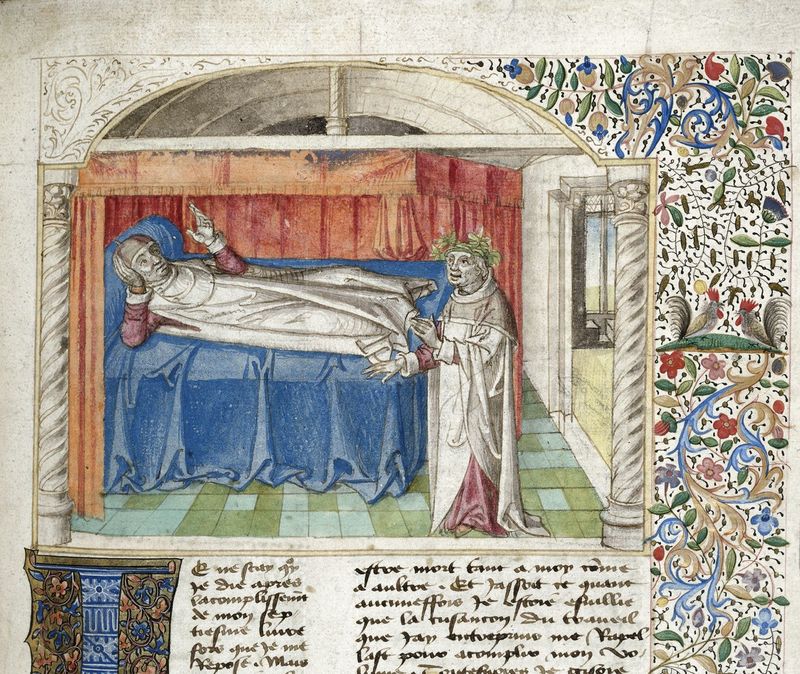 E ne scay q̃lẽ
Je die apres
lacomplissemt
de mon sep
tiesme livre
fors que je me
Repose. Mais
estre mort tant a mon cõme
a aultre. Et jassoit ce quant
aucuneffois Je estoie esveillie
que la du traveil
que Jay entreprins me Rapel
last pour acomplir mon vo